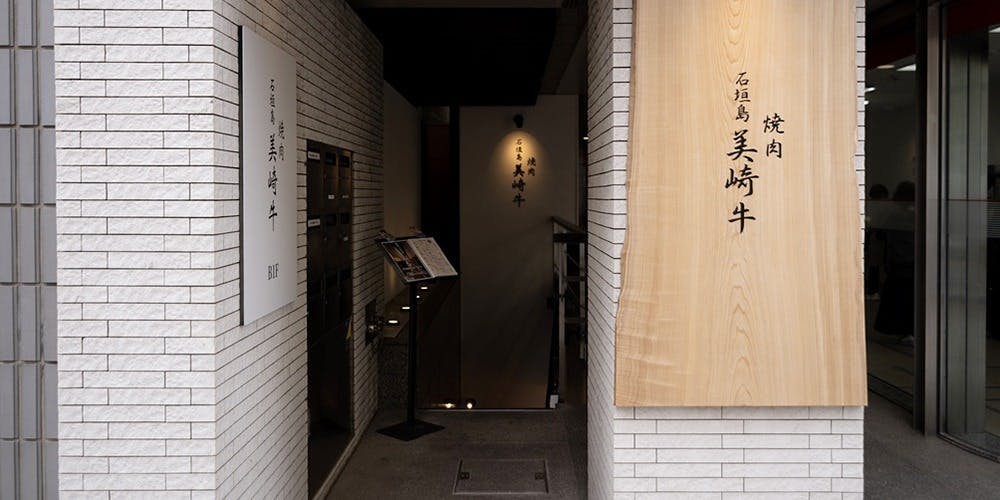 焼肉
石垣島
美崎牛
B1F
焼肉
石垣島
美崎牛
焼肉
石垣島
美崎牛